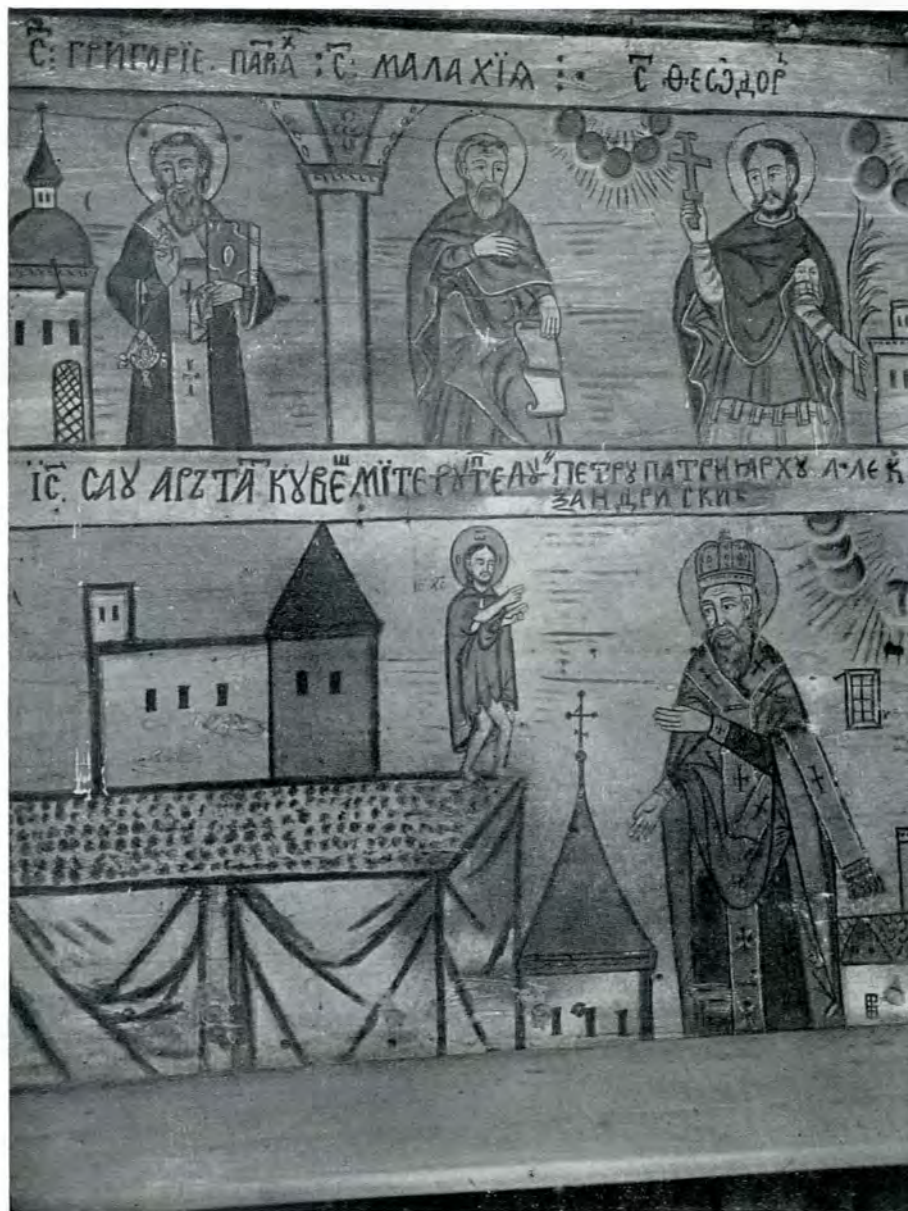 С: ГРИГОРІЕ. ПАВАХ : С: МАЛАХЇѦ :· С ѲЕѠДОР
ЇС. САУ АРЪТАТ КУ ВЕШМІ ТЕ РУПТЕ ЛУИ ПЕТРУ ПАТРИІАРХУ АЛЕК
ЗАНДРИСКИЕ
ІС ХС